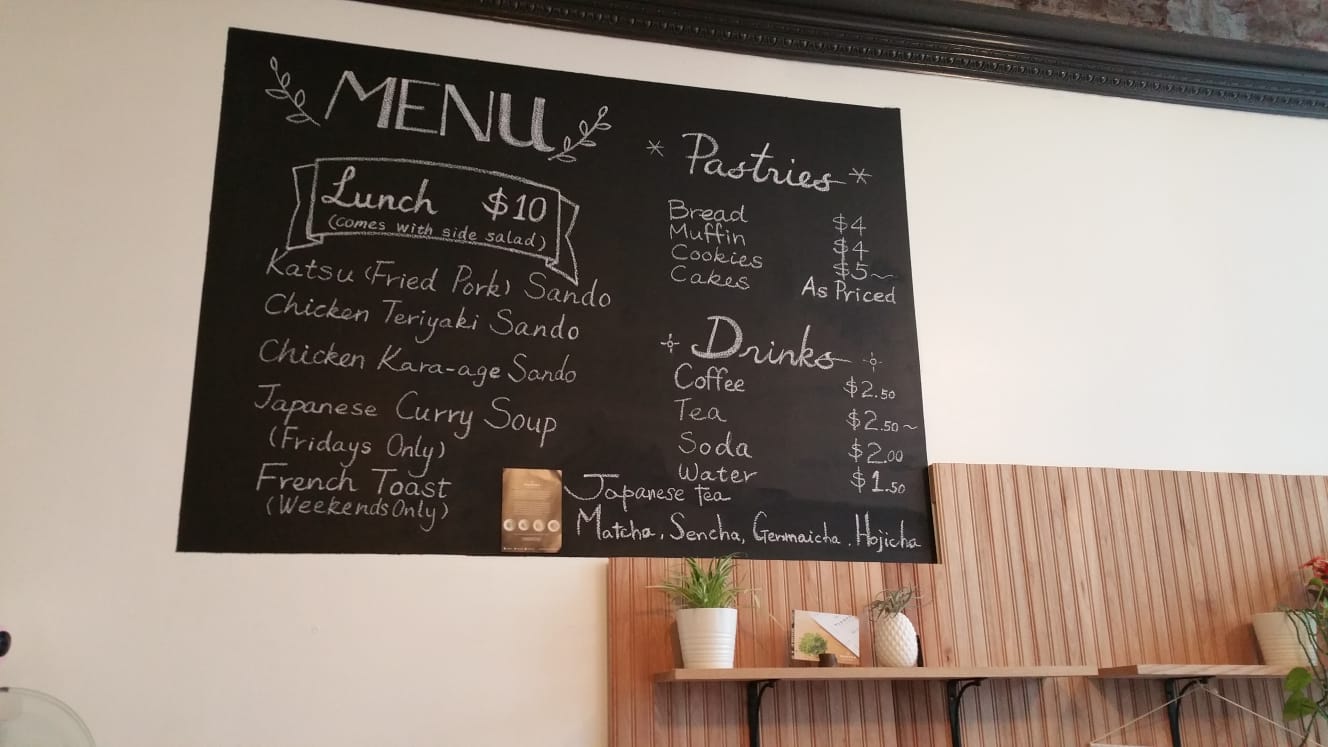 MENU
Lunch $10
(comes with side salad)
Katsu (Fried Pork) Sando
Chicken Teriyaki Sando
Chicken Kara-age Sando
Japanese Curry Soup
(Fridays Only)
French Toast
(Weekends Only)
* Pastries *
Bread $4
Muffin $4
Cookies $5~
Cakes As Priced
Drinks
Coffee $2.50
Tea $2.50~
Soda $2.00
Water $1.50
Japanese tea
Matcha, Sencha, Genmaicha, Hojicha